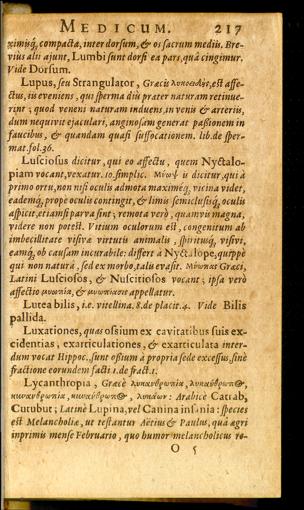 MEDICUM. 217
ximiq́; compacta, inter dorsum, & os sacrum mediis. Bre-
vius alii ajunt, Lumbi sunt dorsi ea pars, quâ cingimur.
Vide Dorsum.
Lupus, seu Strangulator, Græcis λυκοειδὴς, est affe-
ctus, iis eveniens, qui sperma diù præter naturam retinue-
rint; quod veneni naturam induens, in venis & arteriis,
dum nequivit ejaculari, anginosam generat passionem in
faucibus, & quandam quasi suffocationem. lib. de sper-
mat. fol. 36.
Lusciosus dicitur, qui eo affectu, quem Nyctalo-
piam vocant, vexatur. 10. simplic. Μύωψ ii dicitur, qui à
primo ortu, non nisi oculis admota maximéq́; vicina videt,
eademq́; prope oculis contingit, & limis semiclusisq́; oculis
aspicit, etiamsi parva sint; remota verò, quamvis magna,
videre non potest. Vitium oculorum est, congenitum ab
imbecillitate visivæ virtutis animalis, spirituq́; visivi,
eamq́; ob causam incurabile: differt à Nyctalope, quippe
qui non naturâ, sed ex morbo, talis evasit. Μύωπας Græci,
Latini Lusciosos, & Nuscitiosos vocant; ipsa verò
affectio μυωπία, & μυωπίασις appellatur.
Lutea bilis, i.e. vitellina. 8. de placit. 4. Vide Bilis
pallida.
Luxationes, quas ossium ex cavitatibus suis ex-
cidentias, exarticulationes, & exarticulata inter-
dum vocat Hippoc. sunt ossium à propria sede excessus, sine
fractione eorundem facti 1. de fract. 1.
Lycanthropia, Græcè λυκανθρωπία, λυκάνθρωπος,
κυνανθρωπία, κυνάνθρωπος, λυκάων: Arabicè Catrab,
Cutubut; Latinè Lupina, vel Canina insania: species
est Melancholiæ, ut testantur Aëtius & Paulus, quâ ægri
inprimis mense Februario, quo humor melancholicus re-
O 5